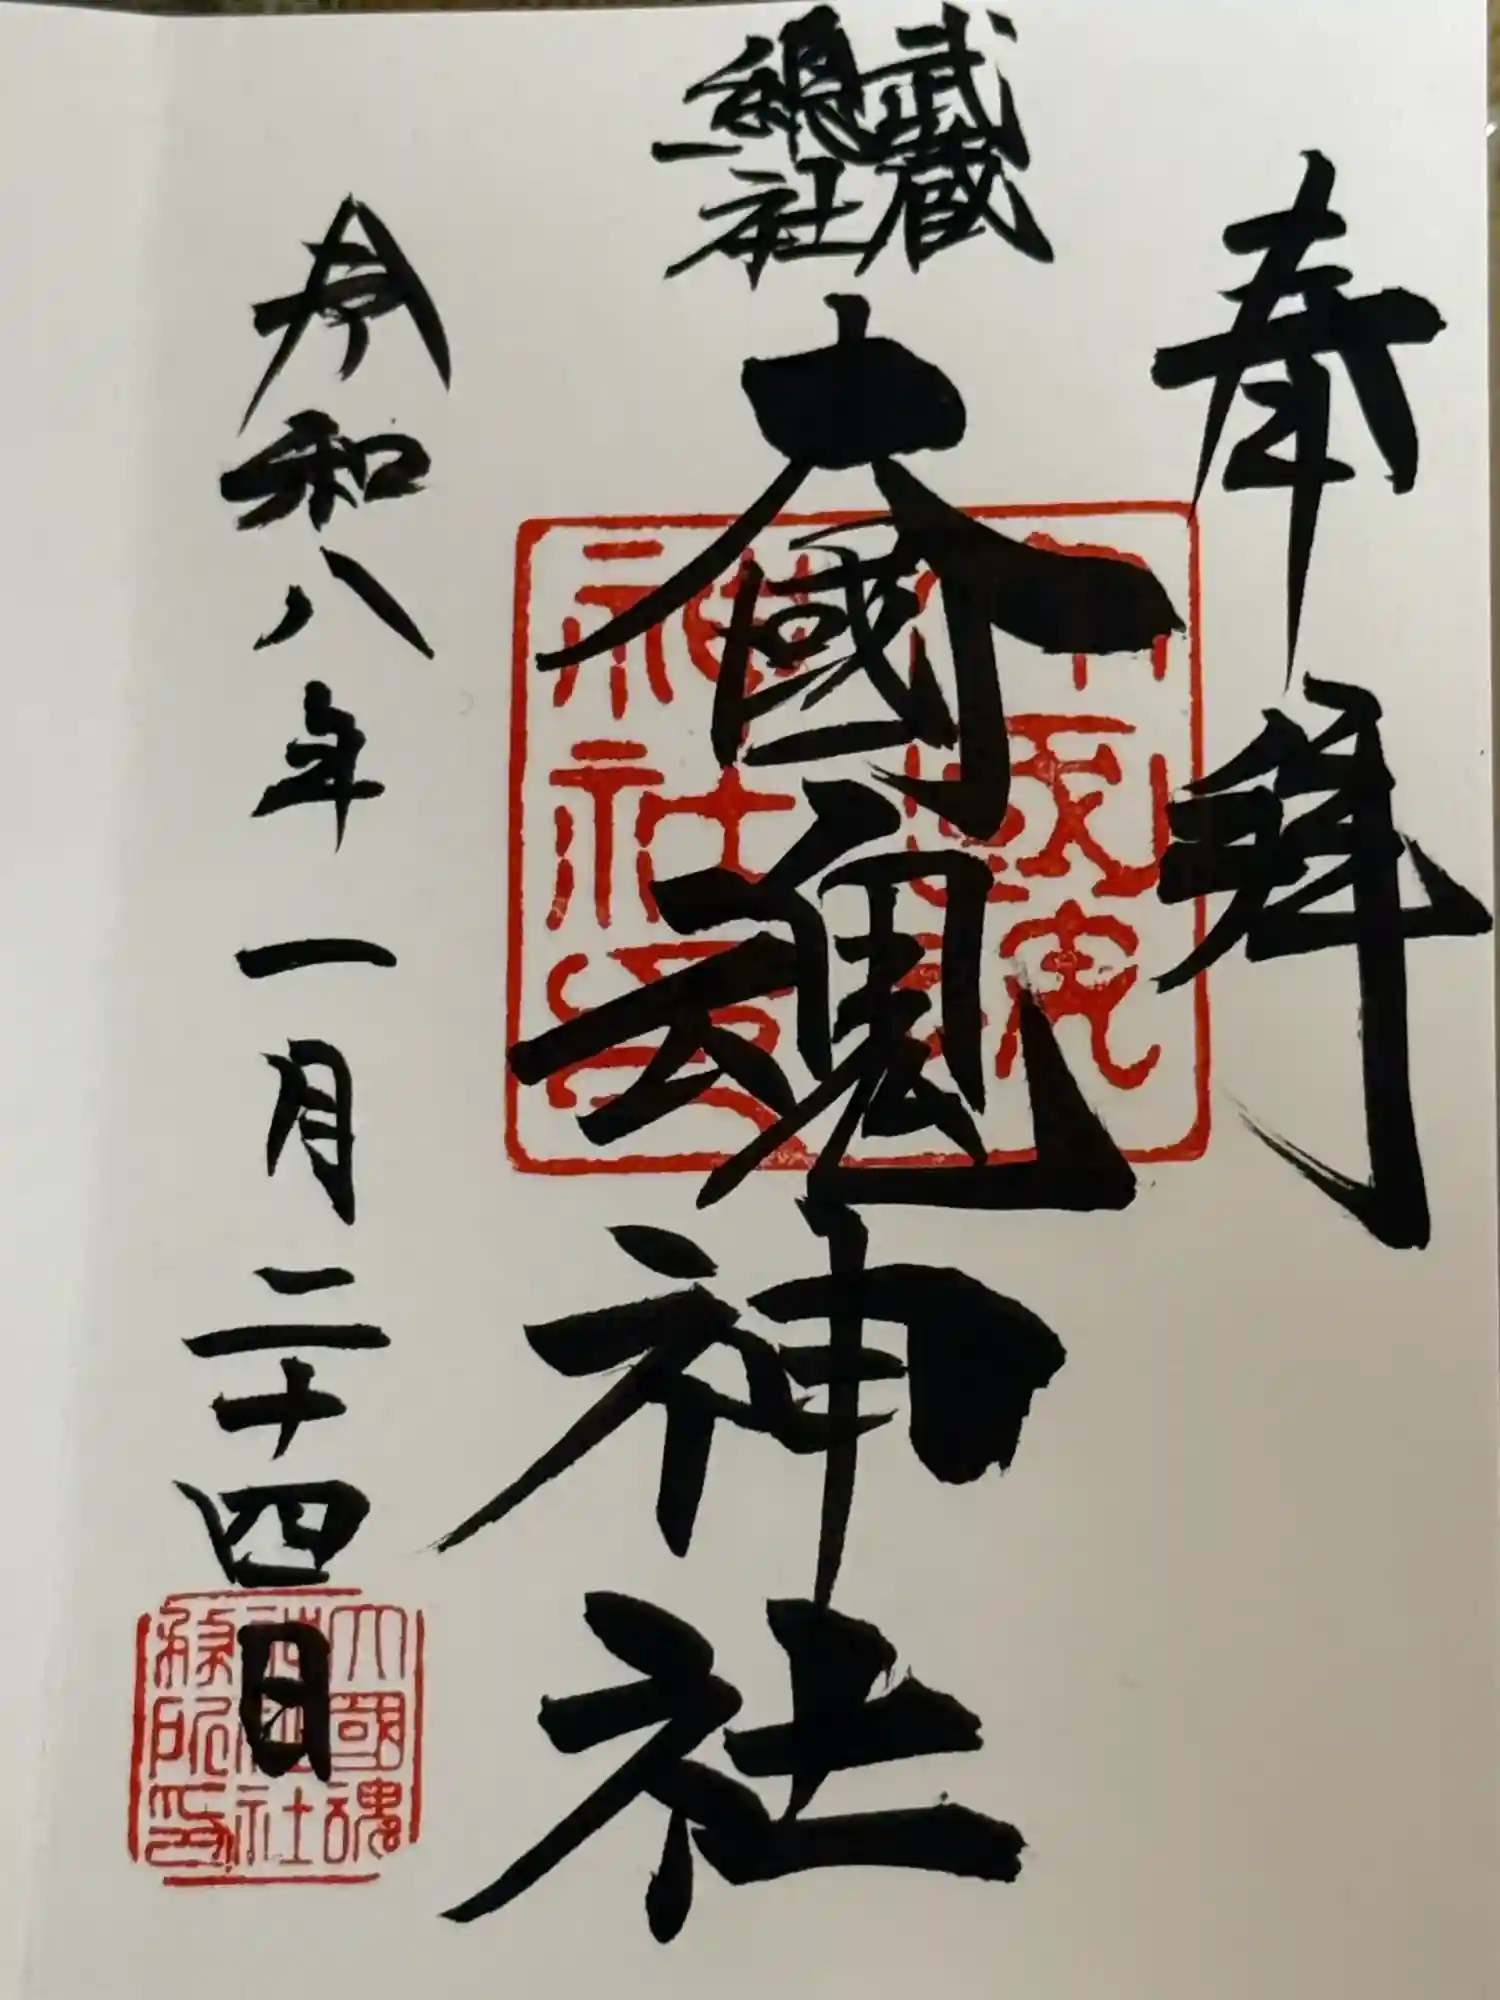 奉拝
武蔵
總社
大國魂神社
令和八年一月二十四日
大國魂
神社
務所印